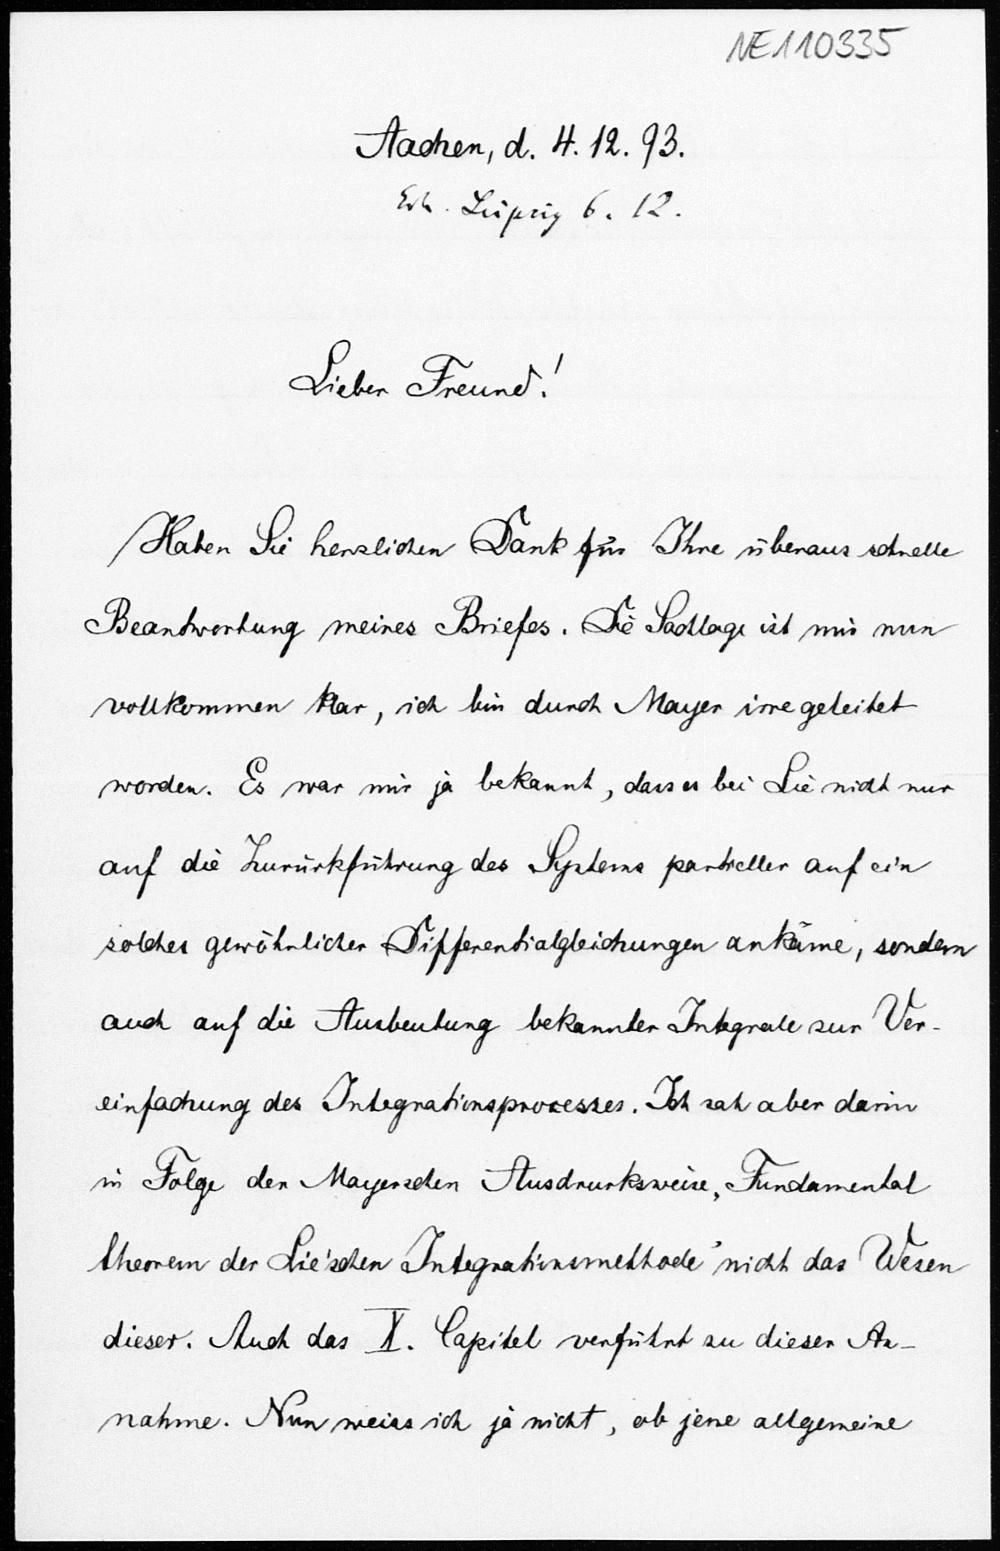 NE110335
Aachen, d. 4. 12. 93.
Erh. Leipzig 6. 12.
Lieber Freund!
Haben Sie herzlichen Dank für Ihre überaus schnelle
Beantwortung meines Briefes. Die Sachlage ist mir nun
vollkommen klar, ich bin durch Mayer irre geleitet
worden. Es war mir ja bekannt, dass es bei Lie nicht nur
auf die Zurückführung des Systems partieller auf ein
solches gewöhnlicher Differentialgleichungen ankäme, sondern
auch auf die Ausbeutung bekannter Integrale zur Ver-
einfachung des Integrationsprocesses. Ich sah aber darin
in Folge der Mayerschen Ausdrucksweise „Fundamental
theorem der Lie'schen Integrationsmethode“ nicht das Wesen
dieser. Auch das X. Capitel verführt zu dieser An-
nahme. Nun weiss ich ja nicht, ob jene allgemeine